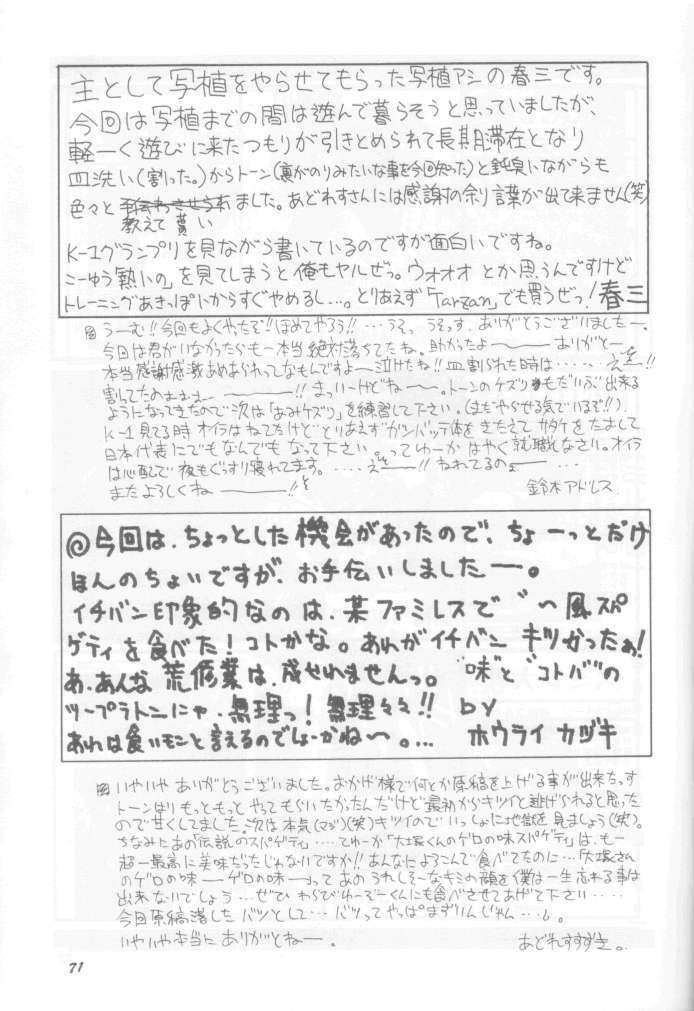 主として写植をやらせてもらった写植アシの春三です。
今回は写植までの間は遊んで暮らそうと思っていましたが、
軽ーく遊びに来たつもりが引きとめられて長期滞在となり
皿洗い(割った。)からトーン(裏がのりみたいな事を今回知った)と
色々と教えて貰いました。あどれすさんには感謝の余り言葉が出て来ません(笑)
K-1グランプリを見ながら書いているのですが面白いですね。
こーゆう「熱いの」を見てしまうと俺もヤルぜっ。ウォオオ とか思うんですけど
トレーニングあきっぽいからすぐやめるし…。とりあえず「Tarzan」でも買うぜっ! 春三
うーむ!!今回もよくやったで!!ほめてやろう!!…うそっ うそっす、ありがとうございましたー、
今日は君がいなかったらもー本当絶対落ちてたね。助かったよー ありがとー
本当感謝感激あめあられってなもんですよー泣けたね!!皿割られた時は……
割してたのぉぉぉ ー!!まっいーけどねー。トーンのケズリもだいぶ出来る
ようになってきたので次は「あみケズリ」を練習して下さい。(まだやらせる気でいるぞ!!)
K-1見てる時オイラはねてたけどとりあえずガンバッテ体をきたえて サタケをたおして
日本代表にでもなんでもなって下さい。ってゆーかはやく就職しなさい。オイラ
は心配で夜もぐっすり寝れてます。……えっー!! ねれてるのぉー …
またよろしくねー!!
鈴木アドレス
◎今回は、ちょっとした機会があったので、ちょーっとだけ
ほんのちょいですが、お手伝いしましたー。
イチバン印象的なのは、某ファミレスで〝〜風スパ
ゲティを食べた!コトかな。あれがイチバン キツかったぁ!
あ、あんな荒修業は、成せれませんっ。〝味〟と〝コトバ〟の
ツープラトンにゃ、無理っ!無理々々!! by
あれは食いモンと言えるのでしょーかね〜。… ホウライ カヅキ
いやいや ありがとうございました。おかげ様で何とか原稿を上げる事が出来たっす
トーンはりもっともっとやってもらいたかったんだけど最初からキツイと逃げられると思った
ので甘くしてました。次は本気(マジ)(笑)キツイのでいっしょに地獄を見ましょう(笑)。
ちなみにあの伝説のスパゲティ…てゆーか「大塚くんのゲロの味スパゲティ」は、もー
超ー最高に美味だったじゃないですか!!あんなによろこんで食べてたのに…「大塚さん
のゲロの味ーゲロの味ー」ってあのうれしそーなキミの顔を僕は一生忘れる事は
出来ないでしょう…ぜひ わらびゆーぞーくんにも食べさせてあげて下さい……
今回原稿落したバツとして…バツってやっぱまずいんじゃん…。
いやいや本当にありがとねー。
あどれすすずき。
71